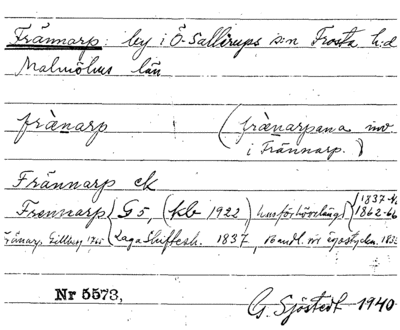 Frännarp: by i Ö. Sallerups s:n Frosta h:d
Malmöhus län
fränarp (fränarpana inv.
i Frännarp.)
Frännarp ek
Frennarp G5, (kb 1922) husförhörslängd 1837-4
1862-66
Gillberg 1765 Laga Skiftesh. 1837, 1833
Nr 5573,
G. Sjöstedt 1940